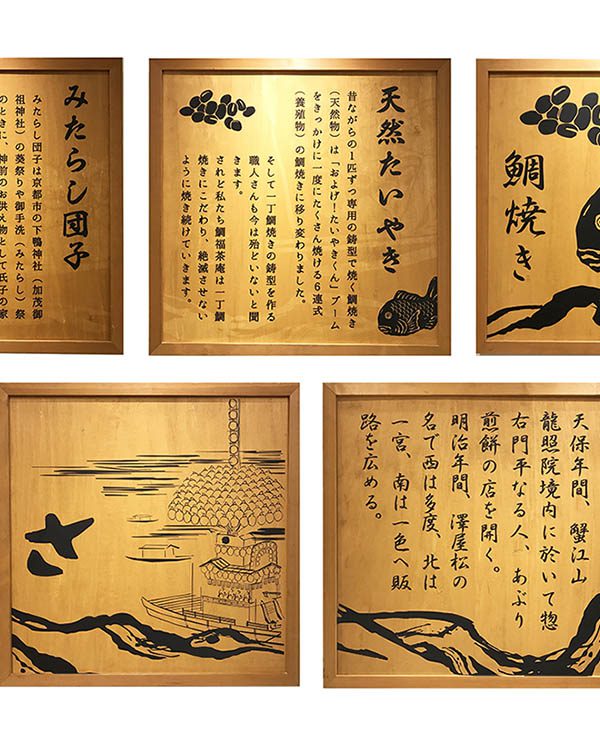 みたらし団子
みたらし団子は京都市の下鴨神社(加茂御
祖神社)の葵祭りや御手洗(みたらし)祭
のときに、神前のお供え物として氏子の家
天然たいやき
昔ながらの1匹ずつ専用の鋳型で焼く鯛焼き
(天然物)は「およげ!たいやきくん」ブーム
をきっかけに一度にたくさん焼ける6連式
(養殖物)の鯛焼きに移り変わりました。
そして一丁鯛焼きの鋳型を作る
職人さんも今は殆どいないと聞
きます。
されど私たち鯛福茶庵は一丁鯛
焼きにこだわり、絶滅させない
ように焼き続けていきます。
鯛焼き
さ
天保年間、蟹江山
龍照院境内に於いて惣
右門平なる人、あぶり
煎餅の店を開く。
明治年間、澤屋松の
名で西は多度、北は
一宮、南は一色へ販
路を広める。